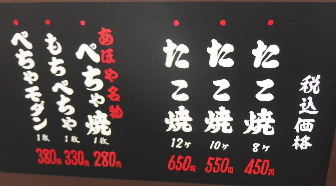 税込価格
たこ焼 8ヶ 450円
たこ焼 10ヶ 550円
たこ焼 12ヶ 650円
あほや名物
ぺちゃ焼 1枚 280円
もちぺちゃ 1枚 330円
ぺちゃモダン 1枚 380円